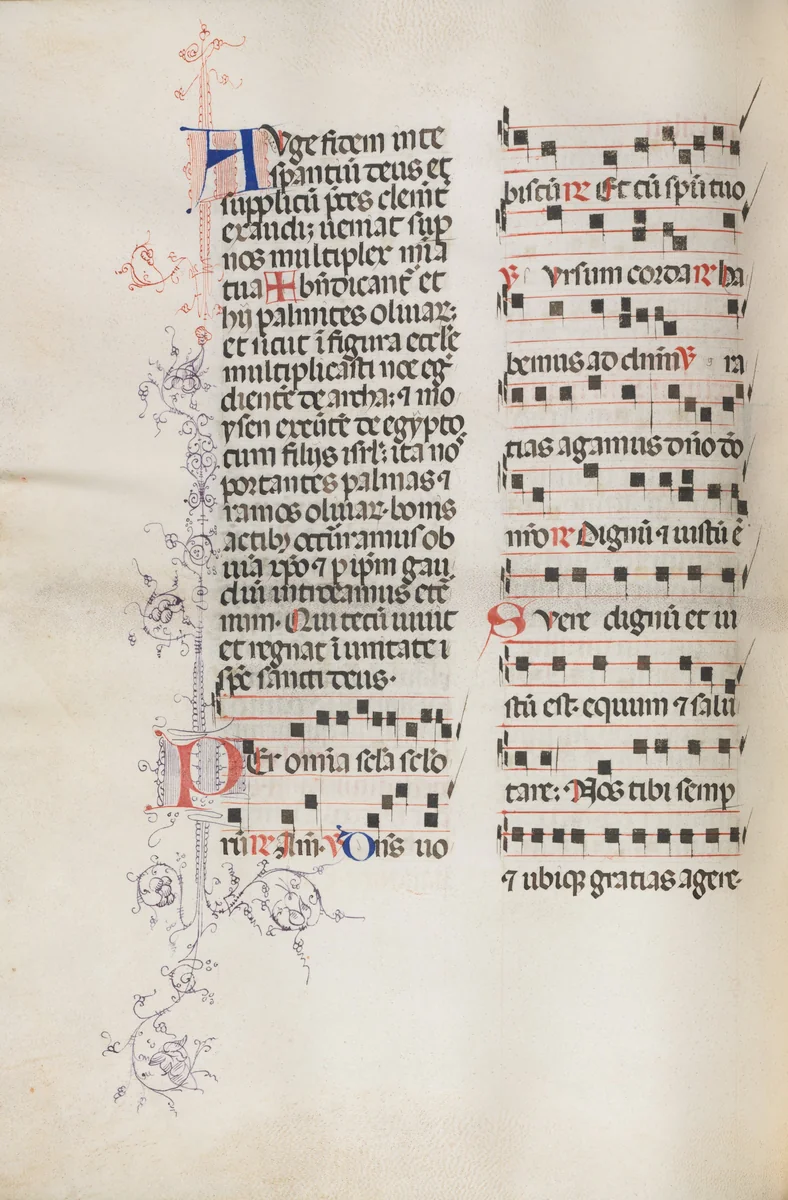 AVge fidem in te
sꝑantiũ deus et
supplicũ p̃ces clemt̃
exaudi; ueniat suꝑ
nos multiplex mĩa
tua ✠ bñdicant̃ et
hij palmites oliuar̃;
et sicut ĩ figura eccl̃e
multiplicasti noe eg̃
diente de archa; ⁊ mo
ysen exeũte de egypto
cum filijs isrl̃; ita nos
portantes palmas ⁊
ramos oliuar̃. bonis
actibꝫ occũramus ob
uiã xp̃o ⁊ ꝑ ip̃m gau
diũ introeamus etẽ
num. Qui tecũ uiuit
et regnat ĩ unitate
sp̃s sancti deus.
PEr omĩa scl̃a scl̃o
rũ ℟ Am̃. ℣ Oñs uo
biscũ ℟ Et cũ sp̃u tuo
℣ ursum corda ℟ ha
bemus ad dnm̃ ℣ ra
tias agamus dño dõ
nr̃o ℟ Dignũ ⁊ iustũ ẽ
S vere dignũ et iu
stũ est. equum ⁊ salu
tare; Nos tibi semꝑ
⁊ ubiqꝫ gratias agere.